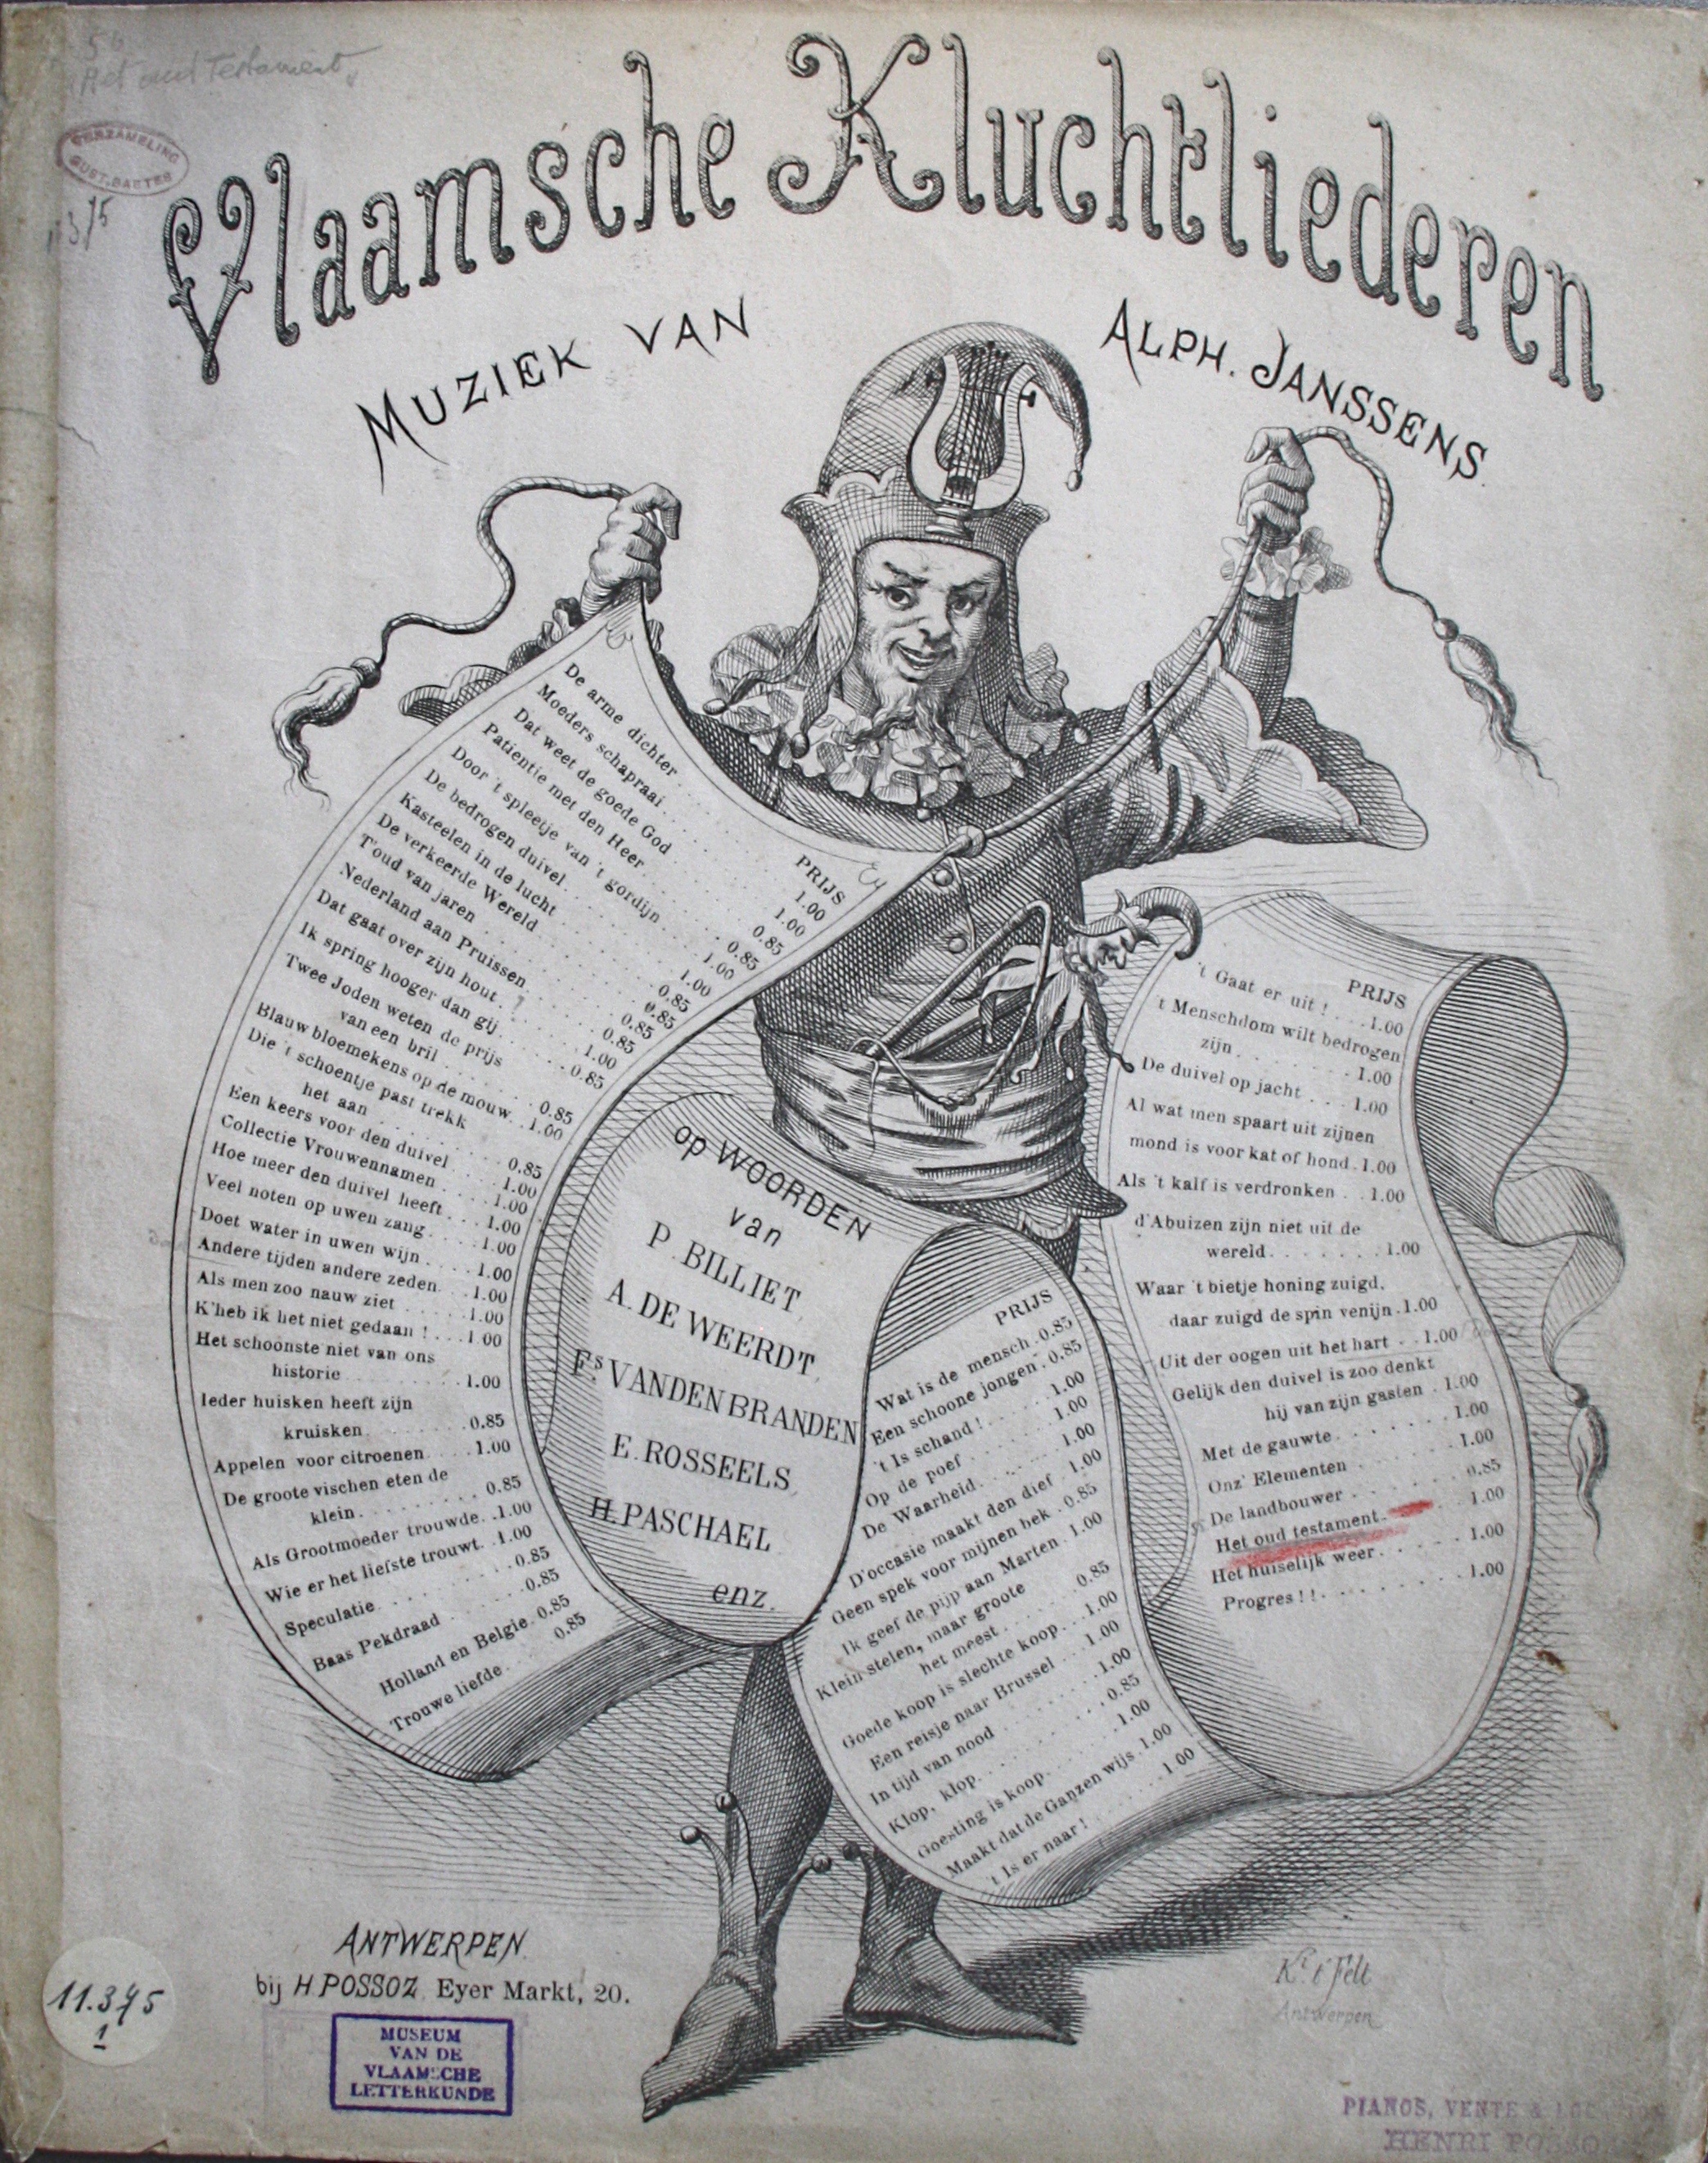 Het oud Testament
VERZAMELING
GUST. BAETES
Vlaamsche Kluchtliederen
MUZIEK VAN ALPH. JANSSENS.
PRIJS
De arme dichter 1.00
Moeders schapraai 1.00
Dat weet de goede God 0.85
Patientie met den Heer 0.85
Door 't spleetje van 't gordijn 1.00
De bedrogen duivel 1.00
Kasteelen in de lucht 0.85
De verkeerde Wereld 0.85
T'oud van jaren 0.85
Nederland aan Pruissen 0.85
Dat gaat over zijn hout 1.00
Ik spring hooger dan gij 0.85
Twee Joden weten de prijs
van een bril 0.85
Blauw bloemekens op de mouw 1.00
Die 't schoentje past trekk
het aan 0.85
Een keers voor den duivel 1.00
Collectie Vrouwennamen 1.00
Hoe meer den duivel heeft 1.00
Veel noten op uwen zang 1.00
Doet water in uwen wijn 1.00
Andere tijden andere zeden 1.00
Als men zoo nauw ziet 1.00
K'heb ik het niet gedaan ! 1.00
Het schoonste niet van ons
historie 1.00
Ieder huisken heeft zijn
kruisken 0.85
Appelen voor citroenen 1.00
De groote vischen eten de
klein 0.85
Als Grootmoeder trouwde 1.00
Wie er het liefste trouwt 1.00
Speculatie 0.85
Baas Pekdraad 0.85
Holland en Belgie 0.85
Trouwe liefde 0.85
op WOORDEN
van
P. BILLIET
A. DE WEERDT
Fs VANDENBRANDEN
E. ROSSEELS
H. PASCHAEL
enz.
PRIJS
Wat is de mensch 0.85
Een schoone jongen 0.85
't Is schand ! 1.00
Op de poef 1.00
De Waarheid 1.00
D'occasie maakt den dief 1.00
Geen spek voor mijnen bek 0.85
Ik geef de pijp aan Marten 1.00
Klein stelen, maar groote
het meest 0.85
Goede koop is slechte koop 1.00
Een reisje naar Brussel 1.00
In tijd van nood 1.00
Klop, klop 0.85
Goesting is koop 1.00
Maakt dat de Ganzen wijs 1.00
't Is er naar ! 1.00
PRIJS
't Gaat er uit ! 1.00
't Menschdom wilt bedrogen
zijn 1.00
De duivel op jacht 1.00
Al wat men spaart uit zijnen
mond is voor kat of hond 1.00
Als 't kalf is verdronken 1.00
d'Abuizen zijn niet uit de
wereld 1.00
Waar 't bietje honing zuigd,
daar zuigd de spin venijn 1.00
Uit der oogen uit het hart 1.00
Gelijk den duivel is zoo denkt
hij van zijn gasten 1.00
Met de gauwte 1.00
Onz' Elementen 1.00
De landbouwer 0.85
Het oud testament 1.00
Het huiselijk weer 1.00
Progres ! ! 1.00
ANTWERPEN
bij H. POSSOZ, Eyer Markt, 20.
11.375
1
MUSEUM
VAN DE
VLAAMSCHE
LETTERKUNDE
Antwerpen
PIANOS, VENTE &
HENRI POSSOZ